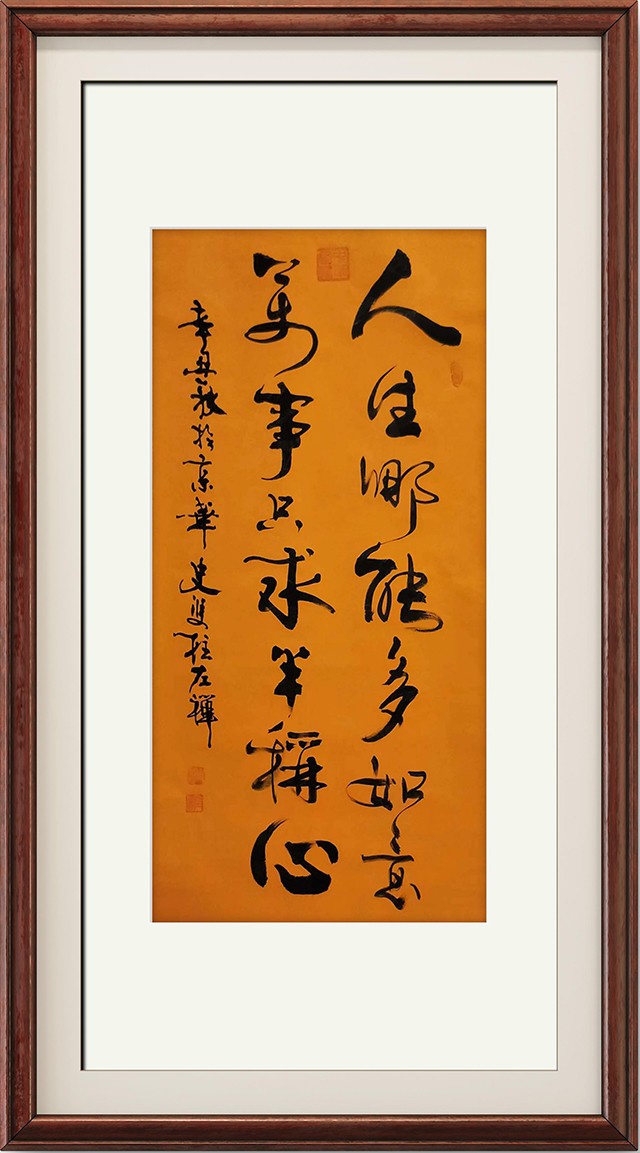 人生哪能多如意
万事只求半称心
辛丑秋於京华史双柱左禅